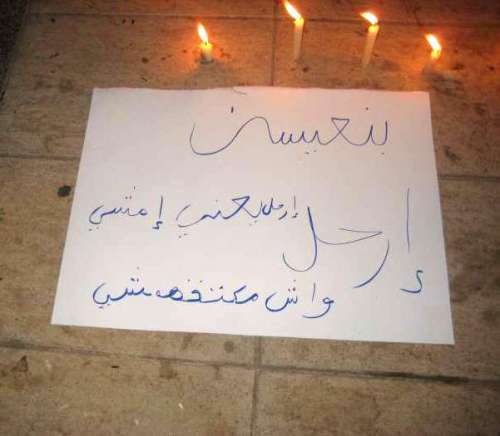 بنعيسى
إرحل
إرحل يعني إمشي
واش مكتفهمشي